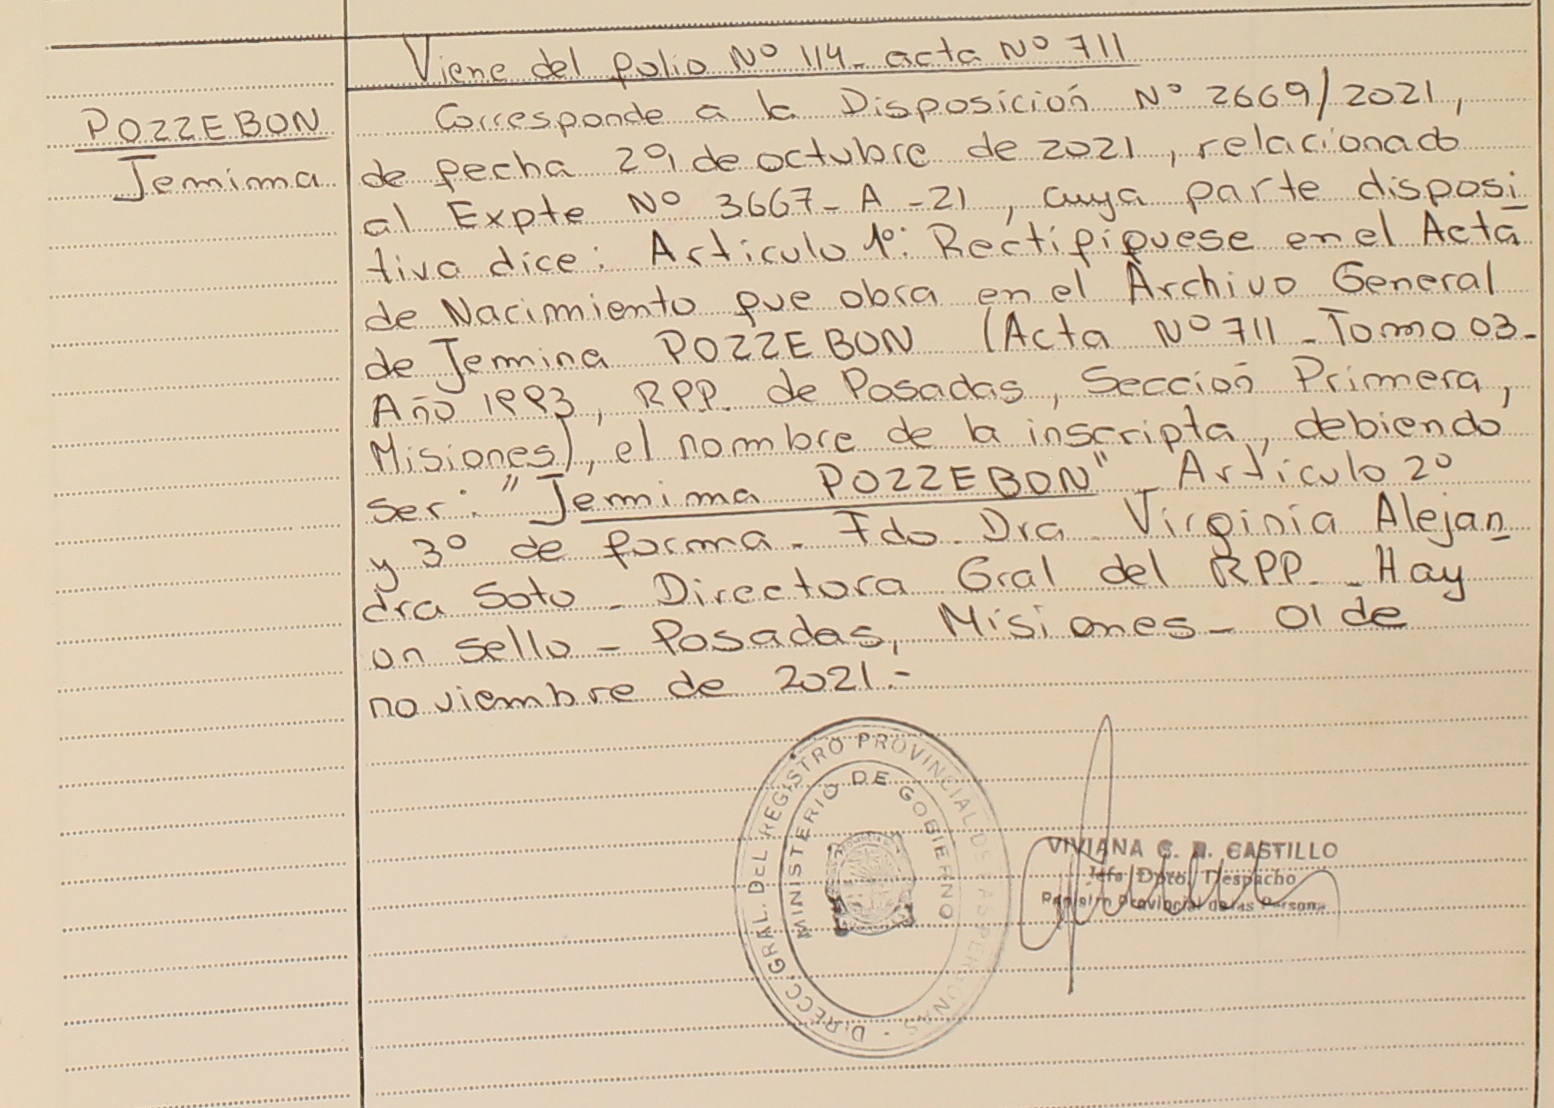 Viene del folio Nº 114- acta Nº 711
POZZEBON
Jemima
Corresponde a la Disposición Nº 2669/2021,
de fecha 29 de octubre de 2021, relacionado
al Expte Nº 3667-A-21, cuya parte disposi
tiva dice: Artículo 1º: Rectifíquese en el Acta
de Nacimiento que obra en el Archivo General
de Jemina POZZEBON (Acta Nº 711-Tomo 03-
Año 1993, RPP. de Posadas, Sección Primera,
Misiones), el nombre de la inscripta, debiendo
ser: "Jemima POZZEBON" - Artículo 2º
y 3º de forma- Fdo- Dra- Virginia Alejan
dra Soto - Directora Gral del RPP- - Hay
un sello - Posadas, Misiones- 01 de
noviembre de 2021.-
DIRECC. GRAL. DEL REGISTRO PROVINCIAL DE LAS PERSONAS -
MINISTERIO DE GOBIERNO
VIVIANA CASTILLO
Jefa Dpto. Despacho
Registro Provincial de las Persona